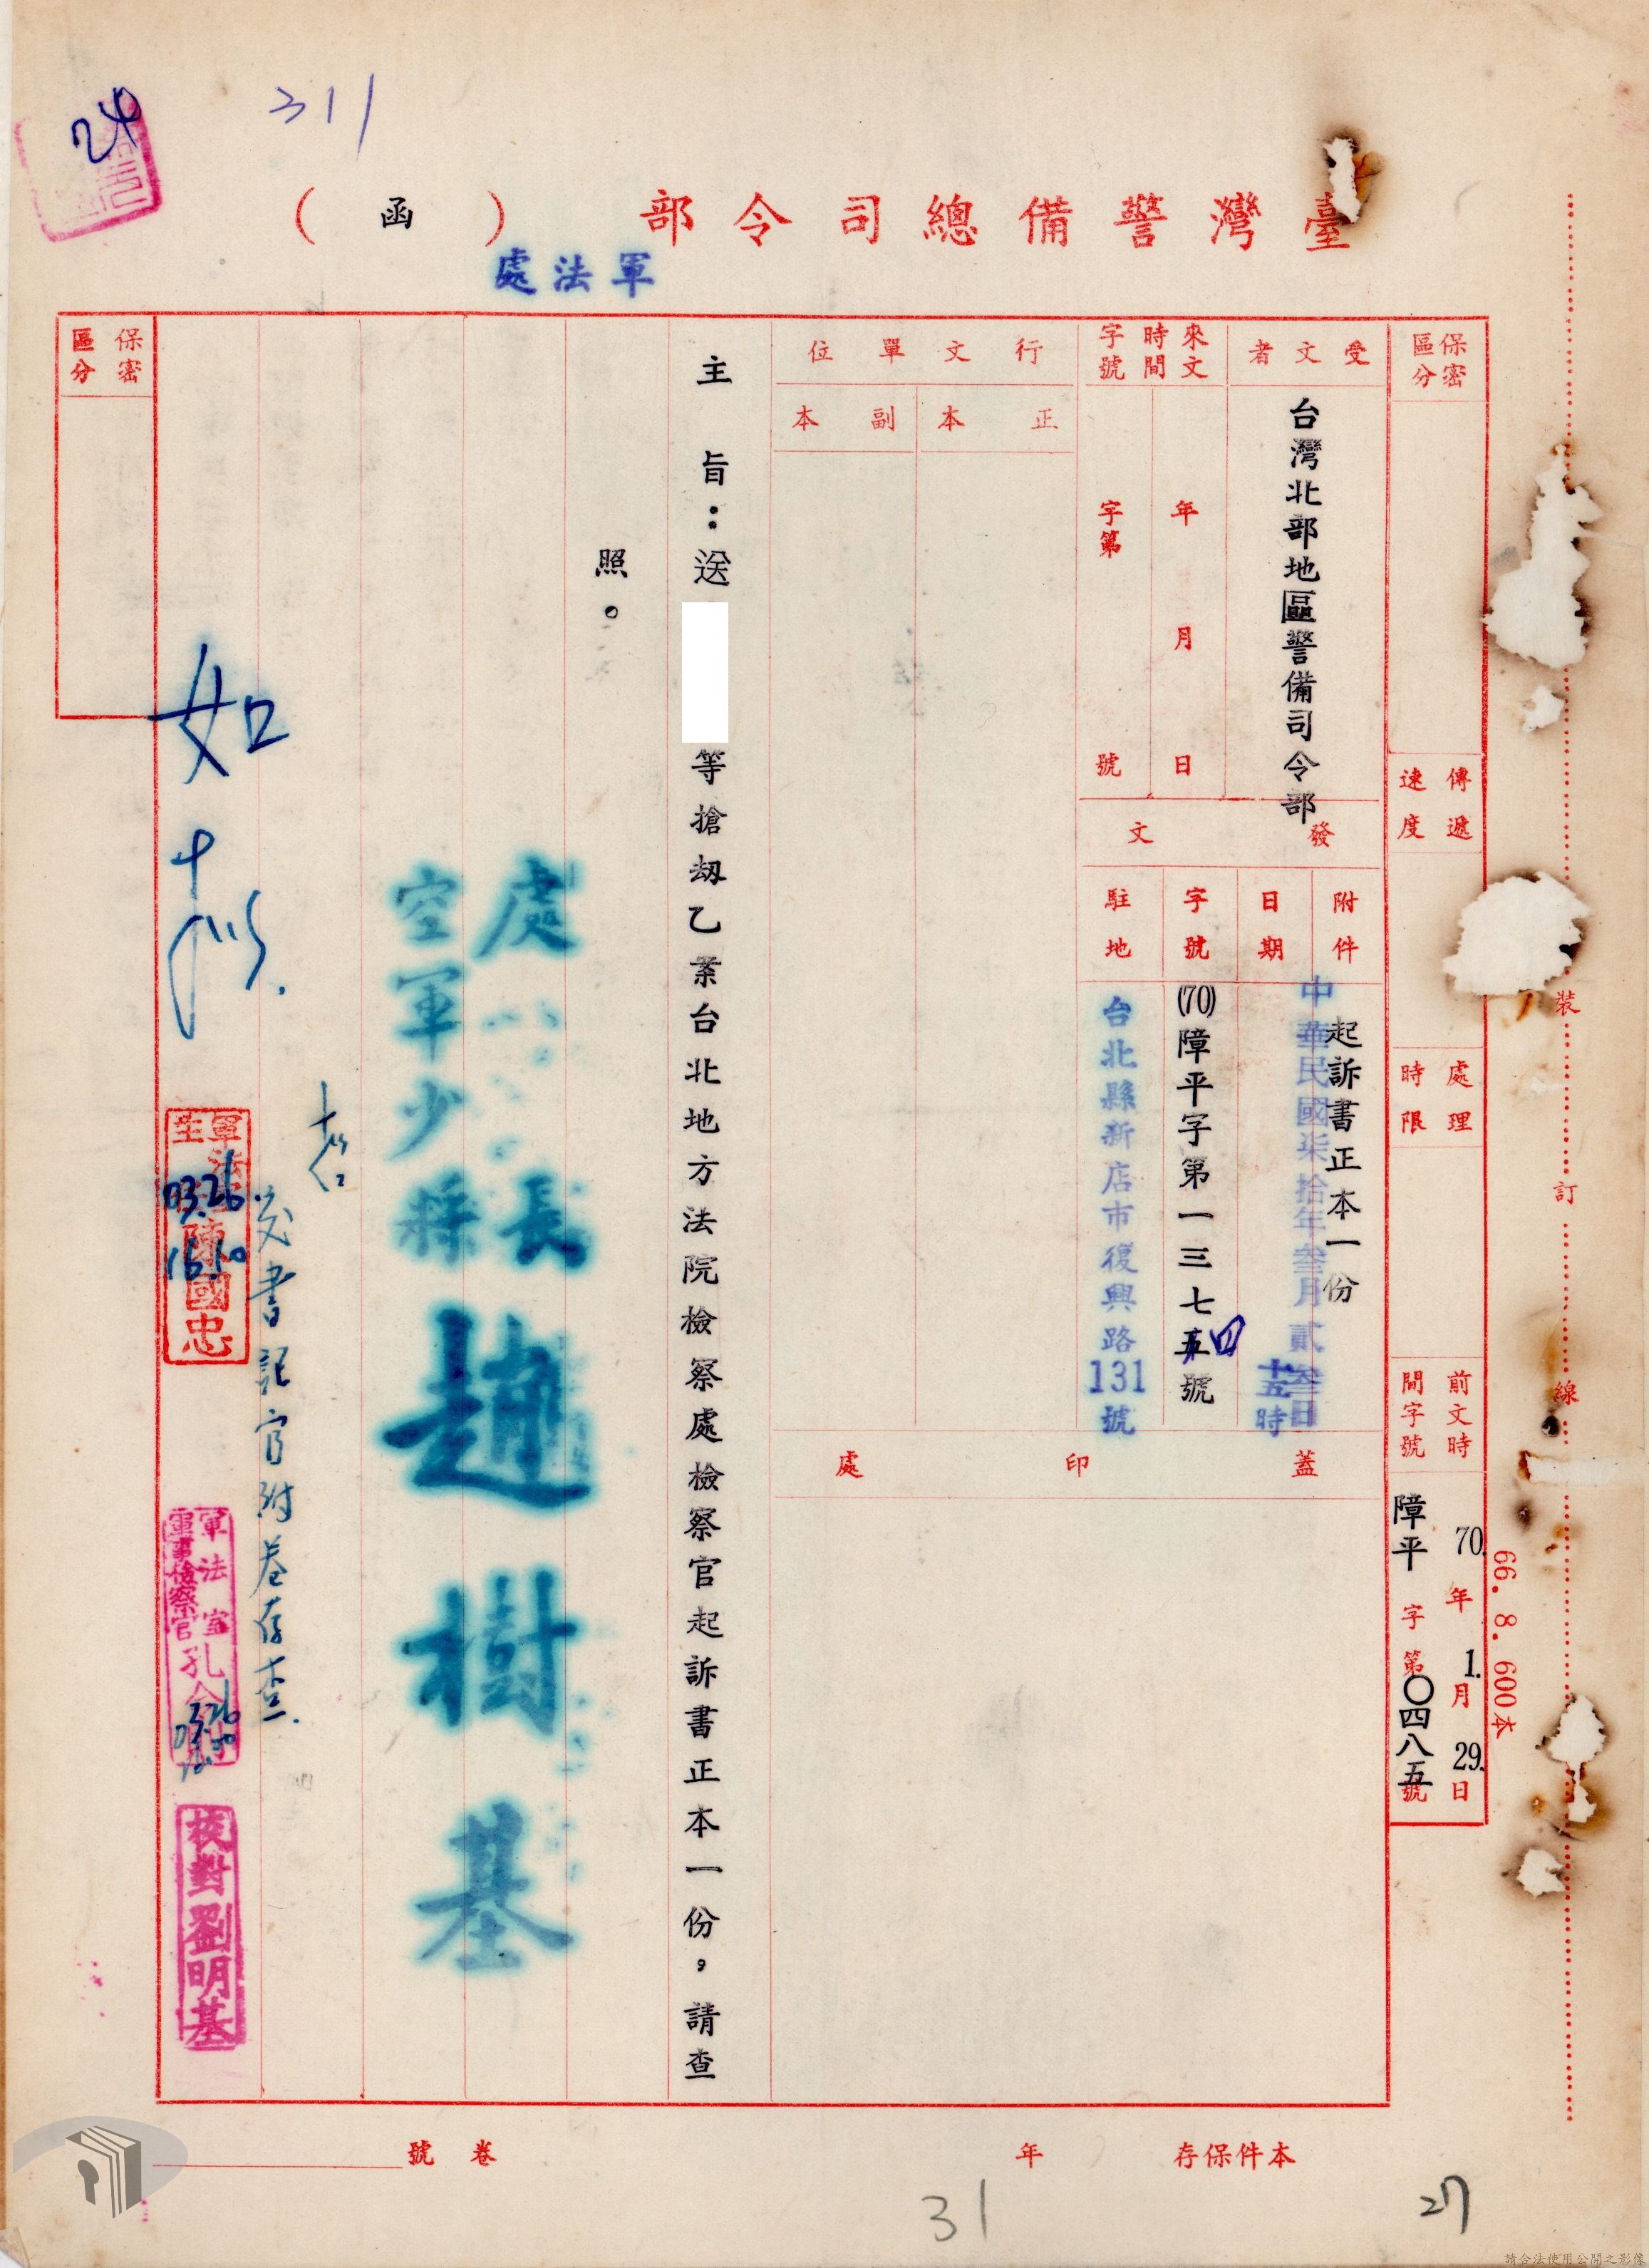 311
24
臺灣警備總司令部（函）
軍法處
保密區分
傳遞速度
處理時限
前文時間字號
70.年1.月29.日
障平字第〇四八五號
受文者
台灣北部地區警備司令部
來文時間字號
年 月 日
字第 號
行文單位
正本
副本
發文
附件
起訴書正本一份
日期
中華民國柒拾年叁月貳叁日
十五時
字號
(70)障平字第一三七五四號
駐地
台北縣新店市復興路131號
蓋印處
主 旨：送
等搶刼乙案台北地方法院檢察處檢察官起訴書正本一份，請查
照。
處長 趙樹基
空軍少將
發書記官附卷存查.
如擬.
軍法室主任陳國忠
03.26
16.10
軍法室軍事檢察官孔
03.26
校對劉明基
保密區分
裝
訂
線
66. 8. 600本
本件保存 年
卷 號
31
27
請合法使用公開之影像